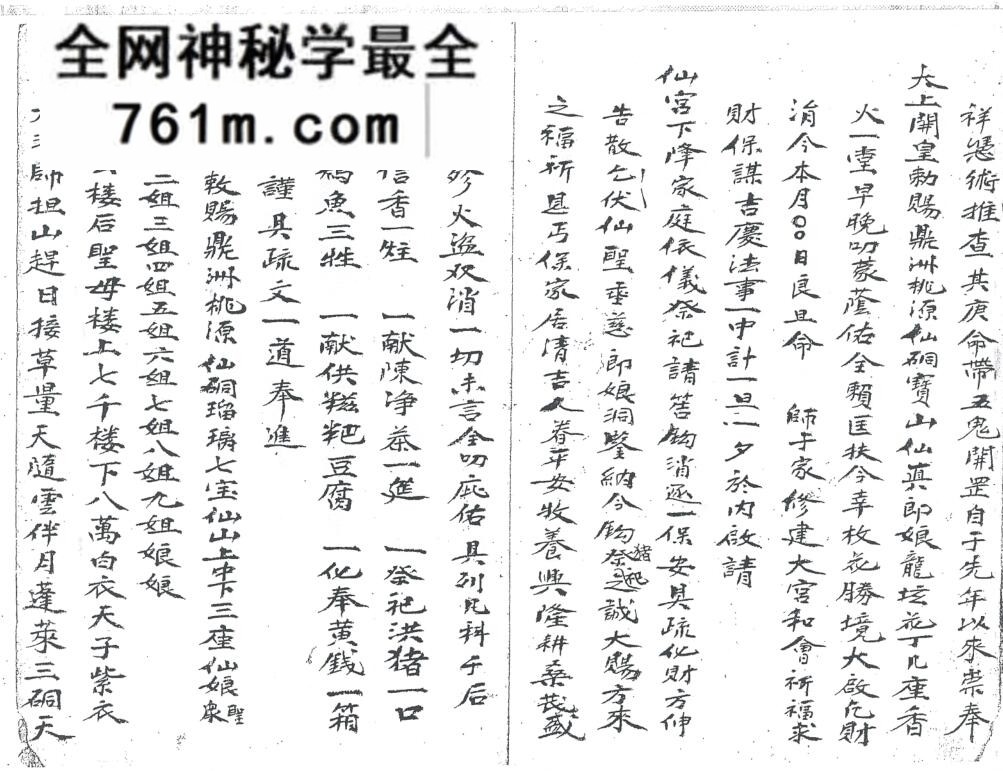 全网神秘学最全
761m.com
祥憑術推查其庚命帶五鬼開罡自于先年以來崇奉
太上開皇勅賜鼎洲桃源仙硐寶山仙真郎娘龍坛花丁几座香
火一堂早晚叨蒙蔭佑全賴匡扶今幸枚花勝境大啟
涓今本月〇〇日良旦命 師于家修建大宮和會祈福求
財保謀吉慶法事一中計一旦一夕於內啟請
仙宮下降家庭依儀祭祀請筶鈎消
一保安具疏化財方伸
告散乞伏仙聖垂慈郎娘洞鑒納今鈎祭猪祀之誠大賜方來
之福祈恩丐保家居清吉人眷平安牧養興隆耕桑茂盛
火盜双消一切未言全叨庇佑具列凡科于后
信香一炷 一献陳净茶一進 一祭祀洪猪一口
魚三牲 一献供糍粑豆腐 一化奉黄錢一箱
謹具疏文一道奉進
敕賜鼎洲桃源仙硐瑠璃七宝仙山上中下三座仙娘聖衆
二姐三姐四姐五姐六姐七姐八姐九姐娘娘
楼后聖母楼上七千楼下八萬白衣天子紫衣
帥担山趕日接草量天隨雲伴月蓬萊三硐天